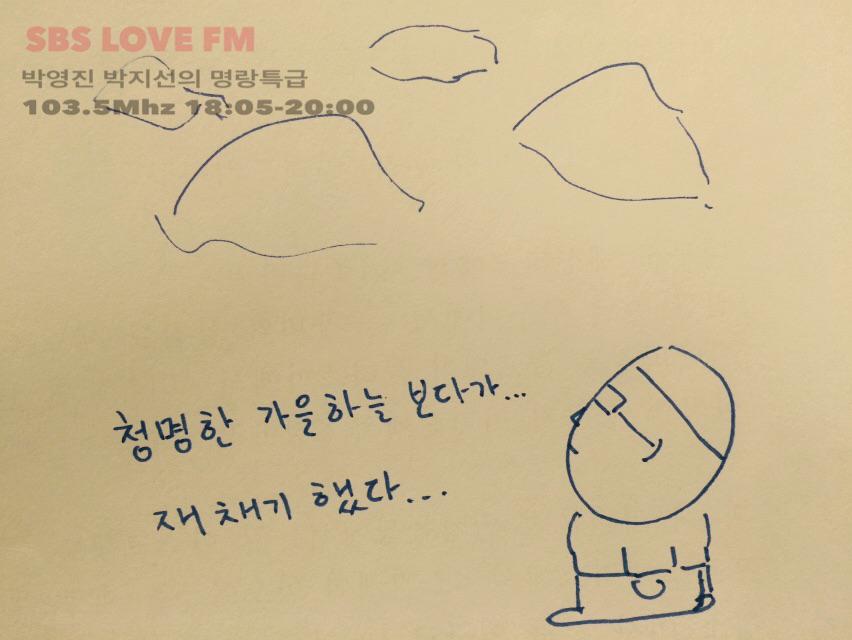 SBS LOVE FM
박영진 박지선의 명랑특급
103.5Mhz 18:05-20:00
청명한 가을하늘 보다가...
재채기 했다...